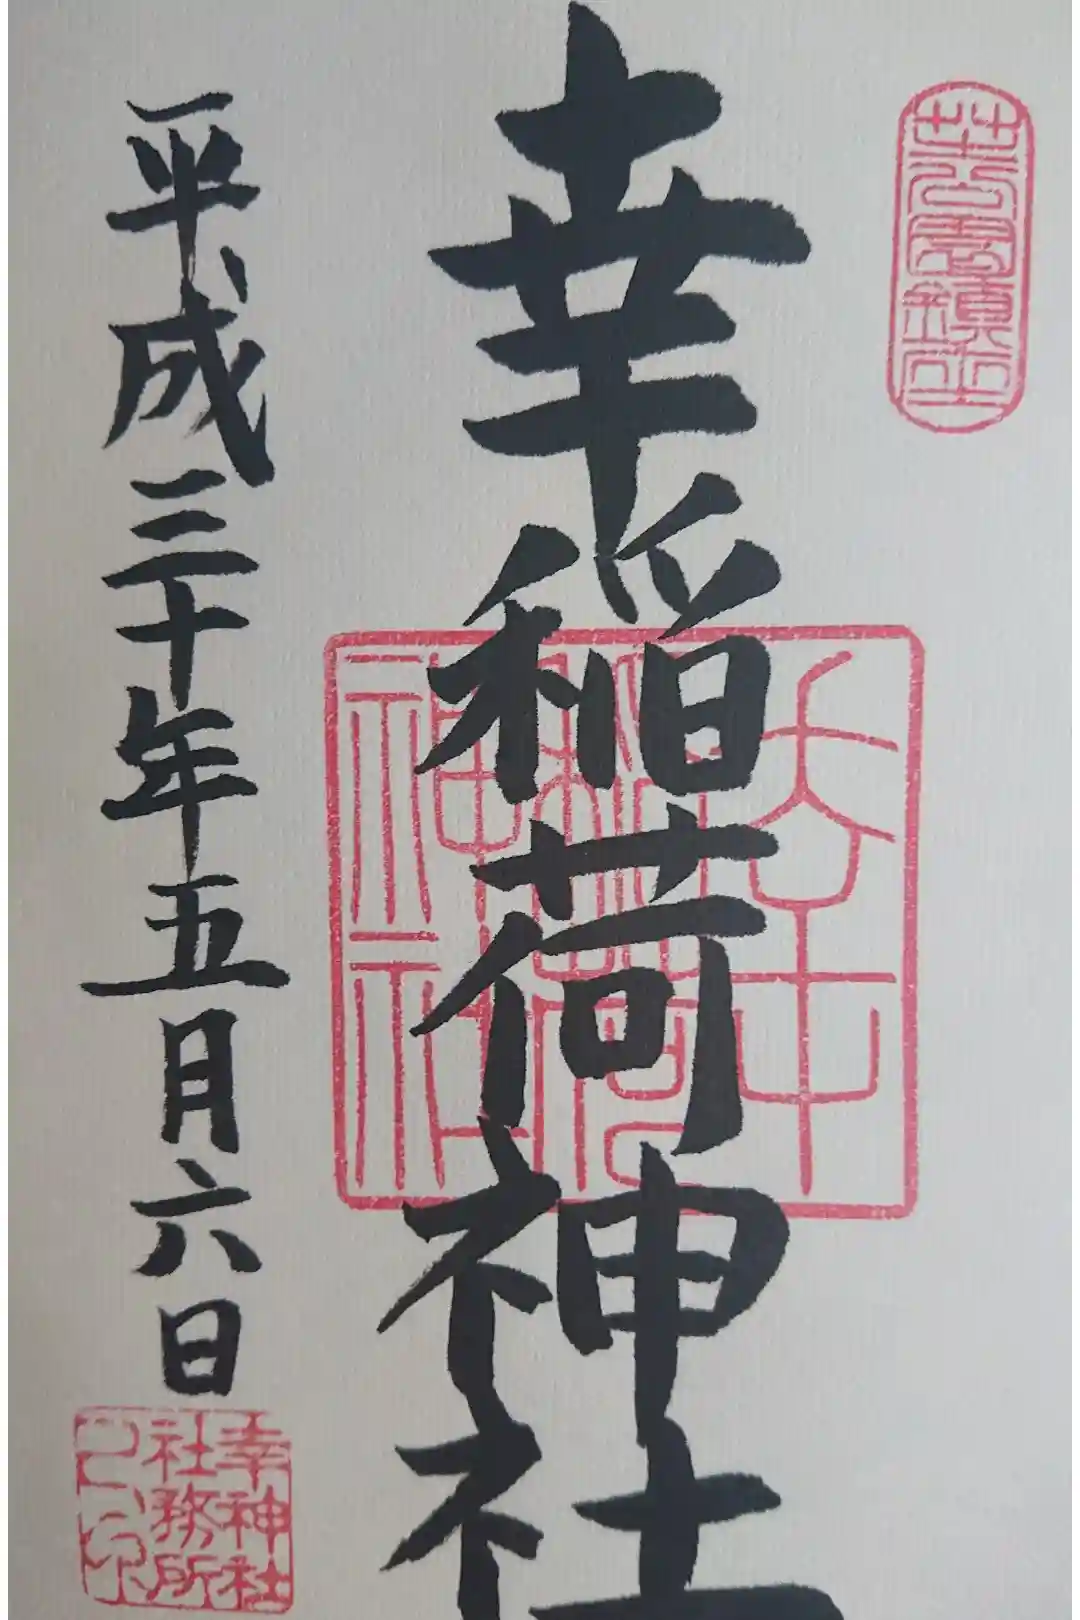 芝公園鎮座
幸稲荷神社
幸稲荷神社
平成三十年五月六日
幸神社
社務所
之印